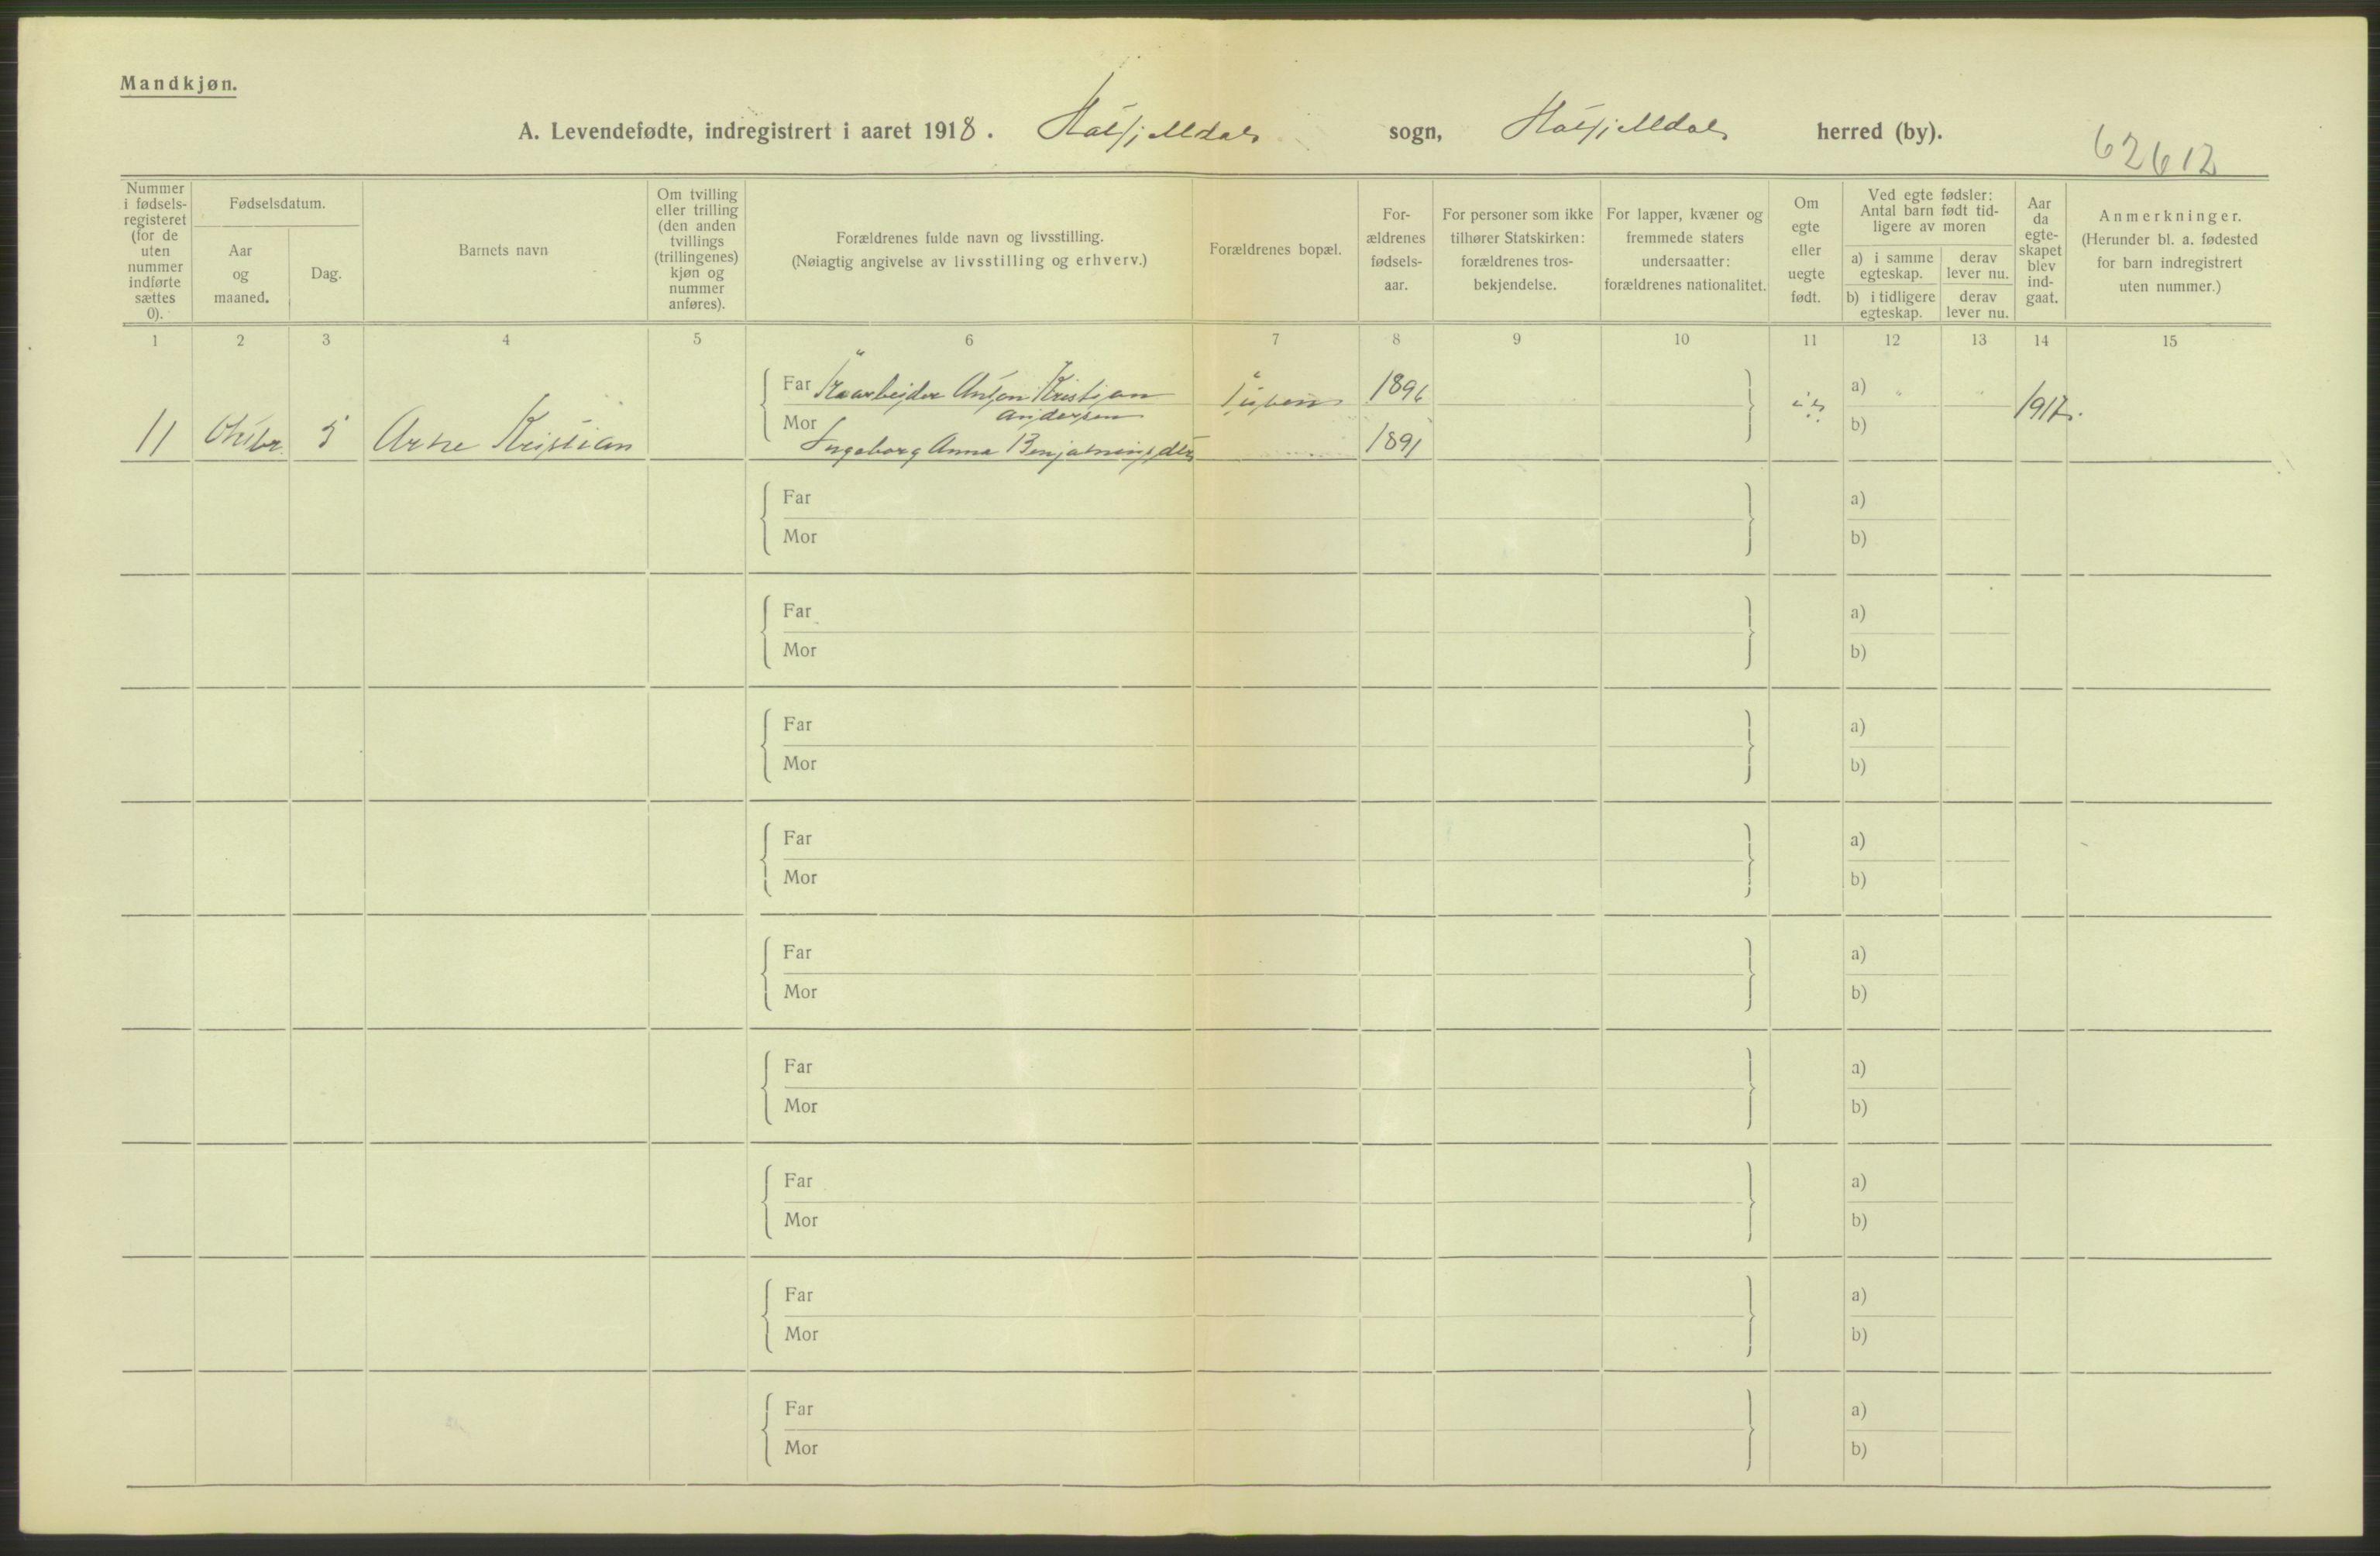 Mandkjøn.
A. Levendefødte, indregistrert i aaret 1918. Hatfjelldals sogn, Hatfjelldals herred (by).
62612
Nummer i fødsels-registeret (for de uten nummer indførte sættes 0).
Fødselsdatum.
Aar og maaned.
Dag.
Barnets navn
Om tvilling eller trilling (den anden tvillings (trillingenes) kjøn og nummer anføres).
Forældrenes fulde navn og livsstilling.
(Nøiagtig angivelse av livsstilling og erhverv.)
Forældrenes bopæl.
For-ældrenes fødsels-aar.
For personer som ikke tilhører Statskirken: forældrenes tros-bekjendelse.
For lapper, kvæner og fremmede staters undersaatter: forældrenes nationalitet.
Om egte eller uegte født.
Ved egte fødsler: Antal barn født tid-ligere av moren
a) i samme egteskap.
derav lever nu.
b) i tidligere egteskap.
derav lever nu.
Aar da egte-skapet blev ind-gaat.
Anmerkninger.
(Herunder bl. a. fødested for barn indregistrert uten nummer.)
1 2 3 4 5 6 7 8 9 10 11 12 13 14 15
Far Anton Kristian 1896 a) "
Andersen
11 Oktbr. 5 Arne Kristian Mor Ingeborg Anna Benjaminsdtr 1891 b) 1917.
Far a)
Mor b)
Far a)
Mor b)
Far a)
Mor b)
Far a)
Mor b)
Far a)
Mor b)
Far a)
Mor b)
Far a)
Mor b)
Far a)
Mor b)
Far a)
Mor b)